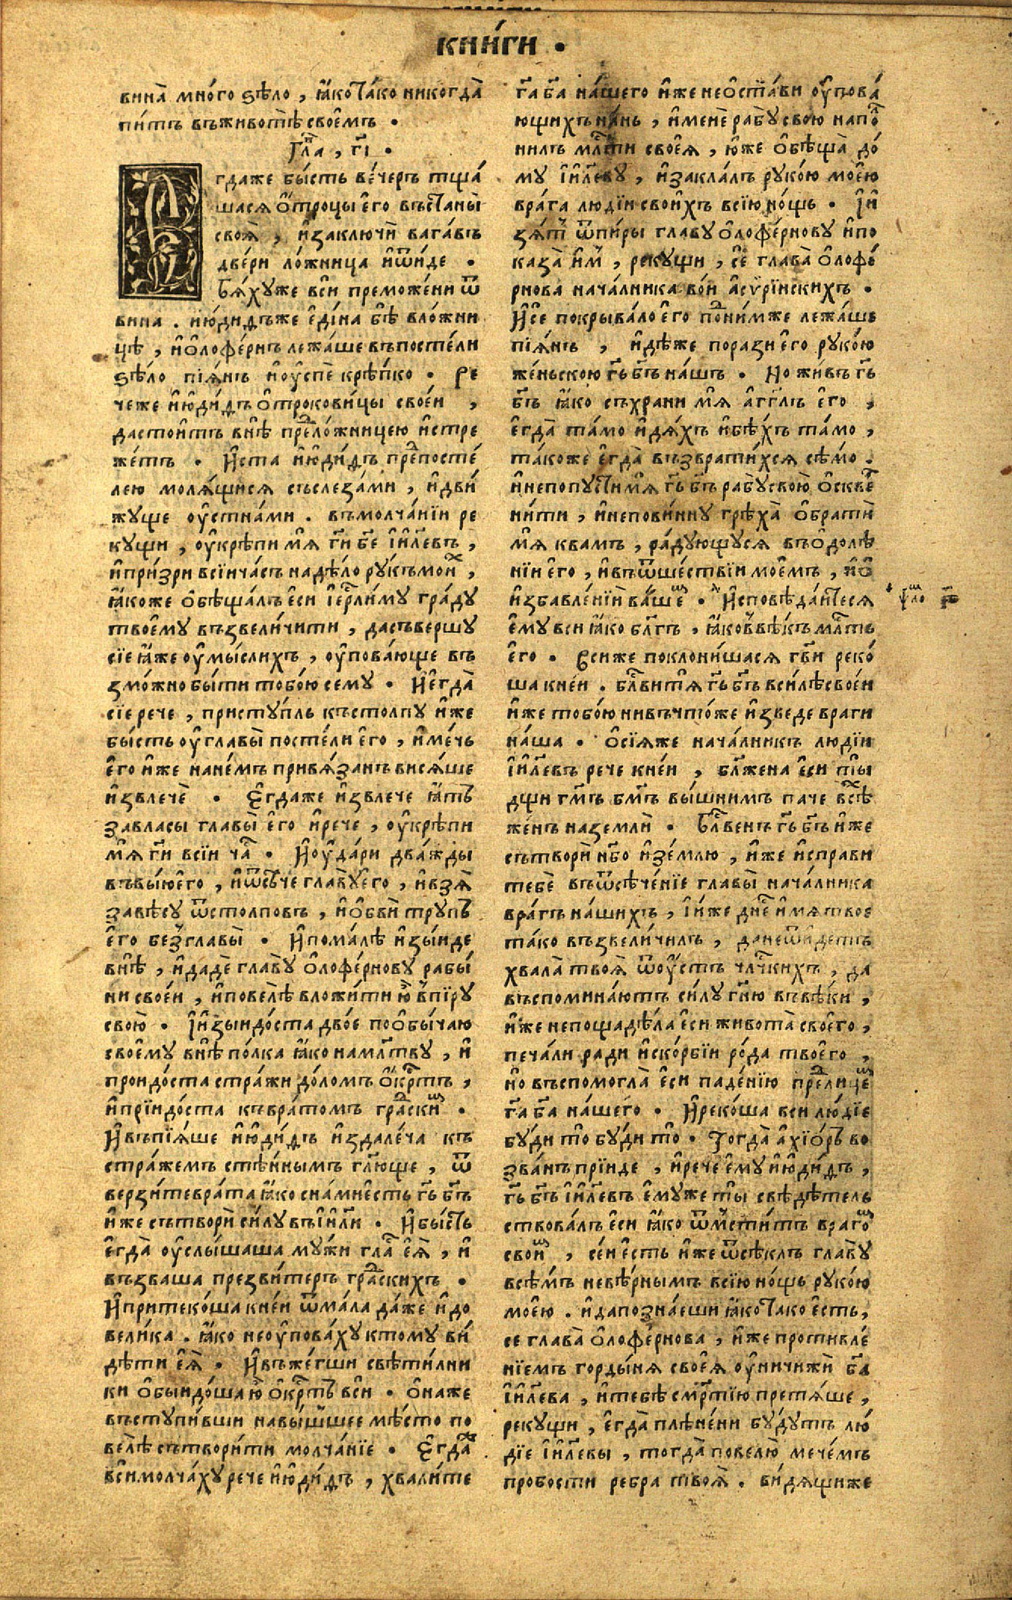 КНИ́ГИ .
вина̀ мно́го ѕѣло , ꙗ҆́ко та́ко никогда̀
пи́тъ въживотѣ̀ своемъ .
Гла҃ , г҃і .
Є҆гдаже бы́сть ве́черъ тща́
шася ѻ҆́троцы є҆го̀ въстаны̀
своѧ̀ , и҆заключѝ вага́въ
две́ри ло́жница и҆ѿи́де .
бѧ́хуже всѝ преможе́ни ѿ
вина . и҆ю҆ди́ѳъже є҆ди́на бѣ̀ вло́жни
цѣ , и҆ѻ҆лофе́рнъ лежа́ше въпосте́ли
ѕѣ́ло пїѧ́нъ и҆ѹ҆спѐ крѣ́пко . Ре
че́же и҆ю҆ди́ѳъ ѻ҆трокови́цы свое́й ,
дастои́тъ внѣ̀ пред̾ло́жницею и҆стре
же́тъ . И҆ста̀ и҆ю҆ди́ѳъ пред̾посте́
лею молѧ́щися съслеза́ми , и҆дви́
жуще ѹ҆стна́ми . въмолча́нїи ре
кущи , ѹ҆крѣпѝ мѧ̀ гд҃и бж҃е і҆и҃левъ ,
и҆при́зри всі́йча́съ надѣ́ло ру́къ мои́х ,
ꙗ҆́коже ѻ҆бѣща́лъ є҆сѝ і҆ер҃лиму гра́ду
твоему̀ възвели́чити , дасъвершу̀
сїѐ ꙗ҆́же ѹ҆мы́слихъ , ѹ҆пова́юще въ
змо́жно бы́ти тобо́ю сему̀ . И҆є҆гда̀
сїѐ речѐ , приступль̀ къстолпу̀ и҆́же
бы́сть ѹ҆главы̀ посте́ли є҆го̀ , и҆ме́чь
є҆го̀ и҆́же нане́мъ привѧ́занъ висѧ́ше
и҆звлечѐ . Є҆гда́же и҆звлечѐ ꙗ҆́тъ
завласы̀ главы̀ є҆го̀ и҆речѐ , ѹ҆крѣпѝ
мѧ̀ гд҃и всі́й ча́с . И҆ѹ҆да́ри два́жды
въвы́ю є҆го̀ , и҆ѿсѣ́че главу̀ є҆го̀ , и҆взѧ̀
завѣ́су ѿстолпо́въ , и҆ѻ҆бвѝ тру́пъ
є҆го̀ без̾главы̀ . И҆пома́лѣ и҆зы́иде
внѣ̀ , и҆дадѐ главу̀ ѻ҆лофе́рнову рабы́
ни свое́й , и҆повелѣ̀ вложи́ти ю҆̀ впи́ру
свою̀ . І҆и҆зыидо́ста дво́е поѻ҆бы́чаю
своему̀ внѣ̀ по́лка ꙗ҆́ко намл҃тву , и҆
проидо́ста стра́жи до́ломъ ѻ҆́крстъ ,
и҆прїидо́ста къврато́мъ гра́дски́м .
И҆въпїѧ́ше и҆ю҆ди́ѳъ и҆здале́ча къ
стра́жемъ стѣ́ннымъ гл҃юще , ѿ
верзи́тевра́та ꙗ҆́ко сна́ми є҆́сть гд҃ь бг҃ъ
и҆́же сътворѝ си́лу въі҆и҃ли . И҆бы́сть
є҆гда̀ ѹ҆слы́шаша му́жи гла́с є҆ѧ̀ , и҆
възва́ша презвитеръ гра́дскихъ .
И҆притеко́ша кне́й ѿма́ла да́же и҆до
вели́ка . ꙗ҆́ко неѹ҆пова́ху ктому̀ ви́
дѣти є҆ѧ̀ . И҆въже́гши свѣти́лни
ки ѻ҆быидо́ша ю҆̀ ѻ҆́крстъ всѝ . ѻ҆на́же
въступи́вши навы́шшее мѣ́сто по
велѣ̀ сътвори́ти молча́нїе . Є҆гда́ж
всѝ молча́ху речѐ и҆ю҆ди́ѳъ , хвали́те
гд҃а бг҃а на́шего и҆́же неѻ҆ста́ви ѹ҆пова́
ющихъ на́нь , и҆менѐ рабу̀ свою̀ напо́л
нилъ мл҃сти своеѧ̀ , ю҆́же ѻ҆бѣща̀ до́
му і҆и҃леву , и҆закла́лъ руко́ю мое́ю
врага̀ люді́й свои́хъ всїю̀ но́щь . І҆и҆
зѧ́тъ ѿпи́ры главу̀ ѻ҆лофе́рнову и҆по
каза̀ и҆́м , рекущи , сѐ глава̀ ѻ҆лофе́
рнова нача́лника во́и а҆сѵрі́искихъ .
И҆сѐ покрыва́ло є҆го̀ под̾ни́мже лежа́ше
пїѧ́нъ , и҆дѣ́же поразѝ є҆го̀ руко́ю
же́ньскою гд҃ь бг҃ъ на́шъ . Но жи́въ гд҃ь
бг҃ъ ꙗ҆́ко съхранѝ мѧ̀ а҆гг҃лъ є҆го̀ ,
є҆гда̀ та́мо и҆дѧ́хъ и҆бѣ́хъ та́мо ,
та́коже є҆гда̀ възврати́хся сѣ́мо .
и҆непопустѝ мѧ̀ гд҃ь бг҃ъ рабу̀ свою̀ ѻ҆скве
ни́ти , и҆непови́нну грѣха̀ ѻ҆братѝ
мѧ̀ ква́мъ , ра́дующуся въѻ҆долѣ́
нїи є҆го̀ , и҆въѿше́ствїи мое́мъ , и҆ѻ҆
и҆збавле́нїи ва́шем . И҆сповѣ́дайтеся
є҆му̀ всѝ ꙗ҆́ко бл҃гъ , ꙗ҆́ковъвѣ́къ мл҃сть
є҆го̀ . Вси́же поклони́шася гд҃ви реко́
ша кне́й . бл҃ви́тѧ гд҃ь бг҃ъ вси́лѣ свое́й
и҆́же тобо́ю нивъчто́же и҆зведѐ врагѝ
на́ша . Ѻ҆сі́ѧже нача́лникъ люді́й
і҆и҃левъ речѐ кне́й , бл҃же́на є҆сѝ ты̀
дщи гд҃емъ бг҃омъ вы́шнимъ па́че все́хъ
же́нъ наземлѝ . Бл҃ве́нъ гд҃ь бг҃ъ и҆́же
сътворѝ нб҃о и҆зе́млю , и҆́же и҆спра́ви
тебѐ въѿсѣче́нїе главы̀ нача́лника
вра́гъ на́шихъ , І҆и҆́же дне́сь и҆́мя твоѐ
та́ко възвели́чилъ , данеѿи́детъ
хвала̀ твоѧ̀ ѿѹ҆́стъ чл҃ческихъ , да
въспомина́ютъ си́лу гд҃ню въвѣ́ки ,
и҆́же непощадѣ́ла є҆сѝ живота̀ своего̀ ,
печа́ли ра́ди и҆ско́рбїи ро́да твоего̀ ,
но въспомогла̀ є҆сѝ паде́нїю пред̾лице́м
гд҃а бг҃а на́шего . И҆реко́ша всѝ лю́дїе
бу́ди то̀ бу́ди то̀ . Тогда̀ а҆хїо́ръ во
зва́нъ прїи́де , и҆речѐ є҆му̀ и҆ю҆ди́ѳъ ,
гд҃ь бг҃ъ і҆и҃левъ є҆му́же ты̀ свѣдѣ́тель
ствова́лъ є҆сѝ ꙗ҆́ко ѿмсти́тъ враго́м
свои́м , се́й є҆́сть и҆́же ѿсѣ́клъ главу̀
всѣ́мъ невѣ́рнымъ всїю̀ но́щь руко́ю
мое́ю . и҆дапозна́еши ꙗ҆́ко та́ко є҆́сть ,
се глава̀ ѻ҆лофе́рнова , и҆́же противле́
нїемъ горды́ня своеѧ̀ ѹ҆ничижѝ бг҃а
і҆и҃лева , и҆тебѣ̀ сме́ртїю претѧ́ше ,
рекущи , є҆гда̀ плѣне́ни бу́дутъ лю́
дїе і҆и҃левы , тогда̀ повелю̀ мече́мъ
пробости ребра твоѧ̀ . ви́дящиже
ѱало рѕ